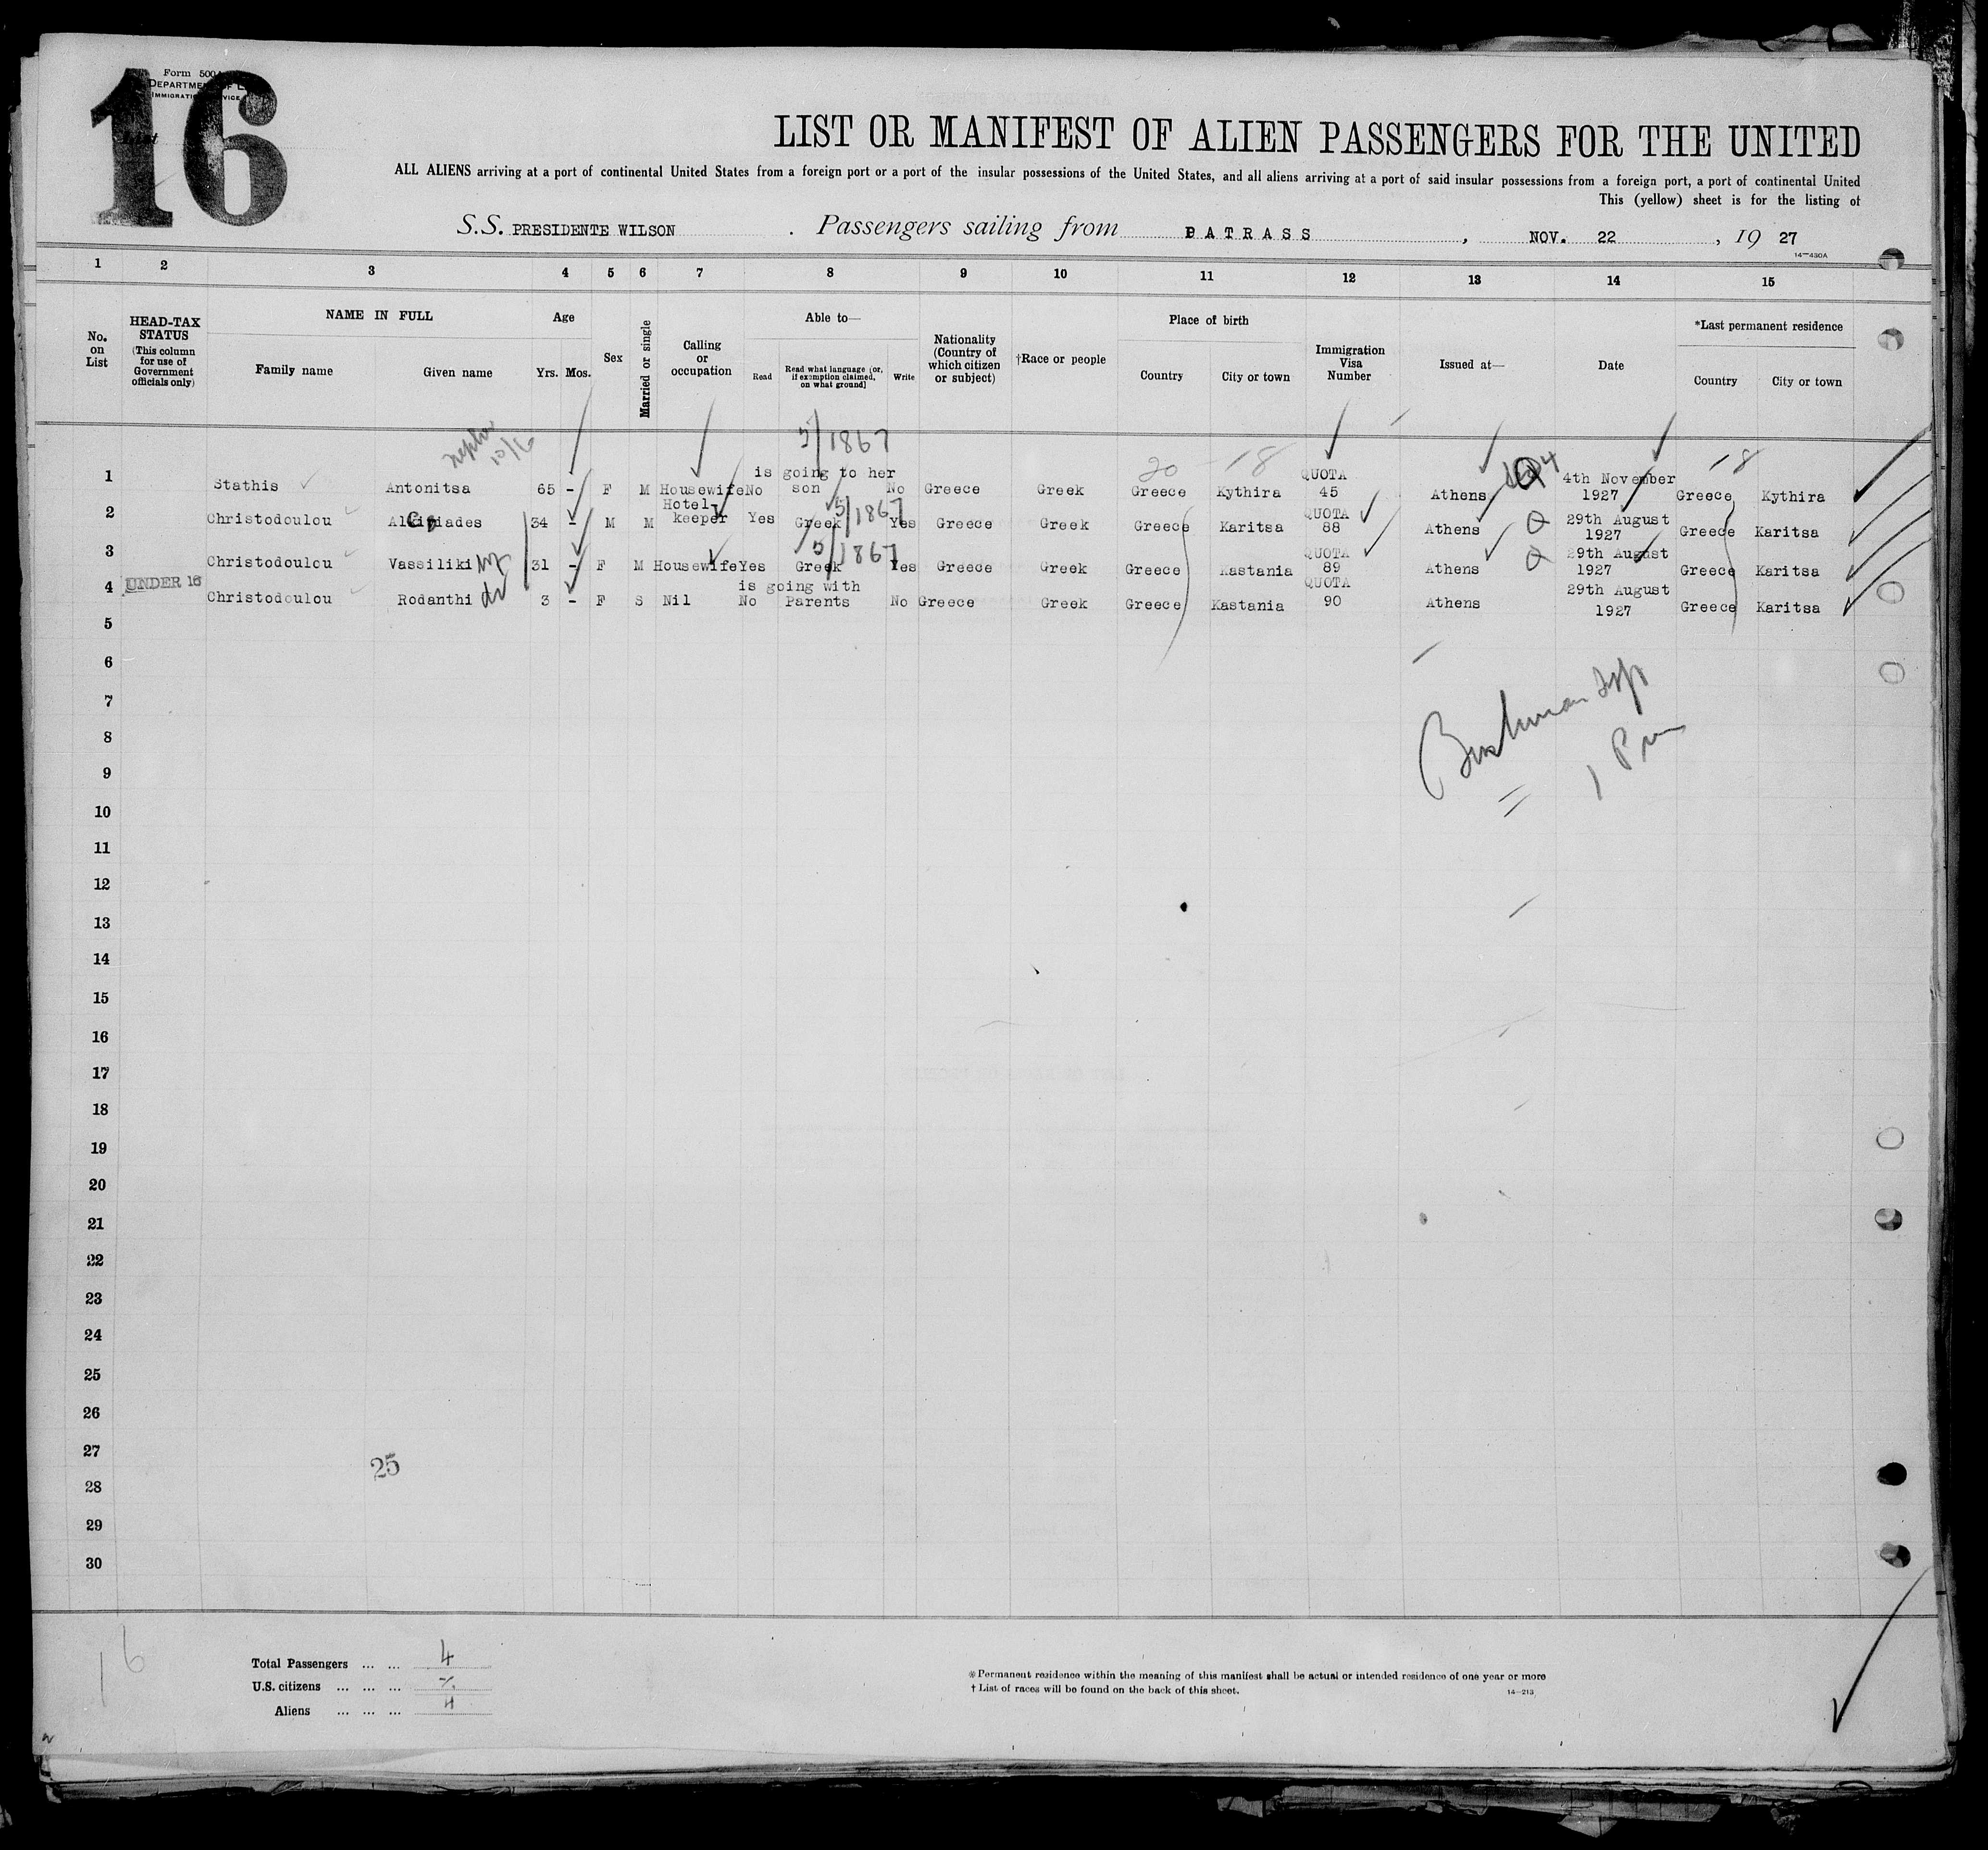 Form 500
DEPARTMENT OF L
IMMIGRATION SERVICE
16
List
LIST OR MANIFEST OF ALIEN PASSENGERS FOR THE UNITED
ALL ALIENS arriving at a port of continental United States from a foreign port or a port of the insular possessions of the United States, and all aliens arriving at a port of said insular possessions from a foreign port, a port of continental United
This (yellow) sheet is for the listing of
S.S. PRESIDENTE WILSON . Passengers sailing from PATRASS , NOV. 22 , 19 27
14—430A
1 2 3 4 5 6 7 8 9 10 11 12 13 14 15
No. on List
HEAD-TAX STATUS (This column for use of Government officials only)
NAME IN FULL
Family name Given name
Age
Yrs. Mos.
Sex
Married or single
Calling or occupation
Able to—
Read Read what language (or, if exemption claimed, on what ground) Write
Nationality (Country of which citizen or subject)
†Race or people
Place of birth
Country City or town
Immigration Visa Number
Issued at—
Date
*Last permanent residence
Country City or town
5/1867
10/6
20 18 18
1 Stathis Antonitsa 65 - F M Housewife No is going to her son No Greece Greek Greece Kythira QUOTA 45 Athens 4th November 1927 Greece Kythira
5/1867
2 Christodoulou Alcibiades 34 - M M Hotel keeper Yes Greek Yes Greece Greek Greece Karitsa QUOTA 88 Athens Q 29th August 1927 Greece Karitsa
5/1867
3 Christodoulou Vassiliki wf 31 - F M Housewife Yes Greek Yes Greece Greek Greece Kastania QUOTA 89 Athens Q 29th August 1927 Greece Karitsa
4 UNDER 16 Christodoulou Rodanthi dr 3 - F S Nil No is going with Parents No Greece Greek Greece Kastania QUOTA 90 Athens 29th August 1927 Greece Karitsa
5
6
7
8
9
10
11
12
13
14
15
16
17
18
19
20
21
22
23
24
25
26
27
25
28
29
30
16
Total Passengers ... ... 4
U.S. citizens ... ... ...
Aliens ... ... ... 4
* Permanent residence within the meaning of this manifest shall be actual or intended residence of one year or more
† List of races will be found on the back of this sheet.
14—213